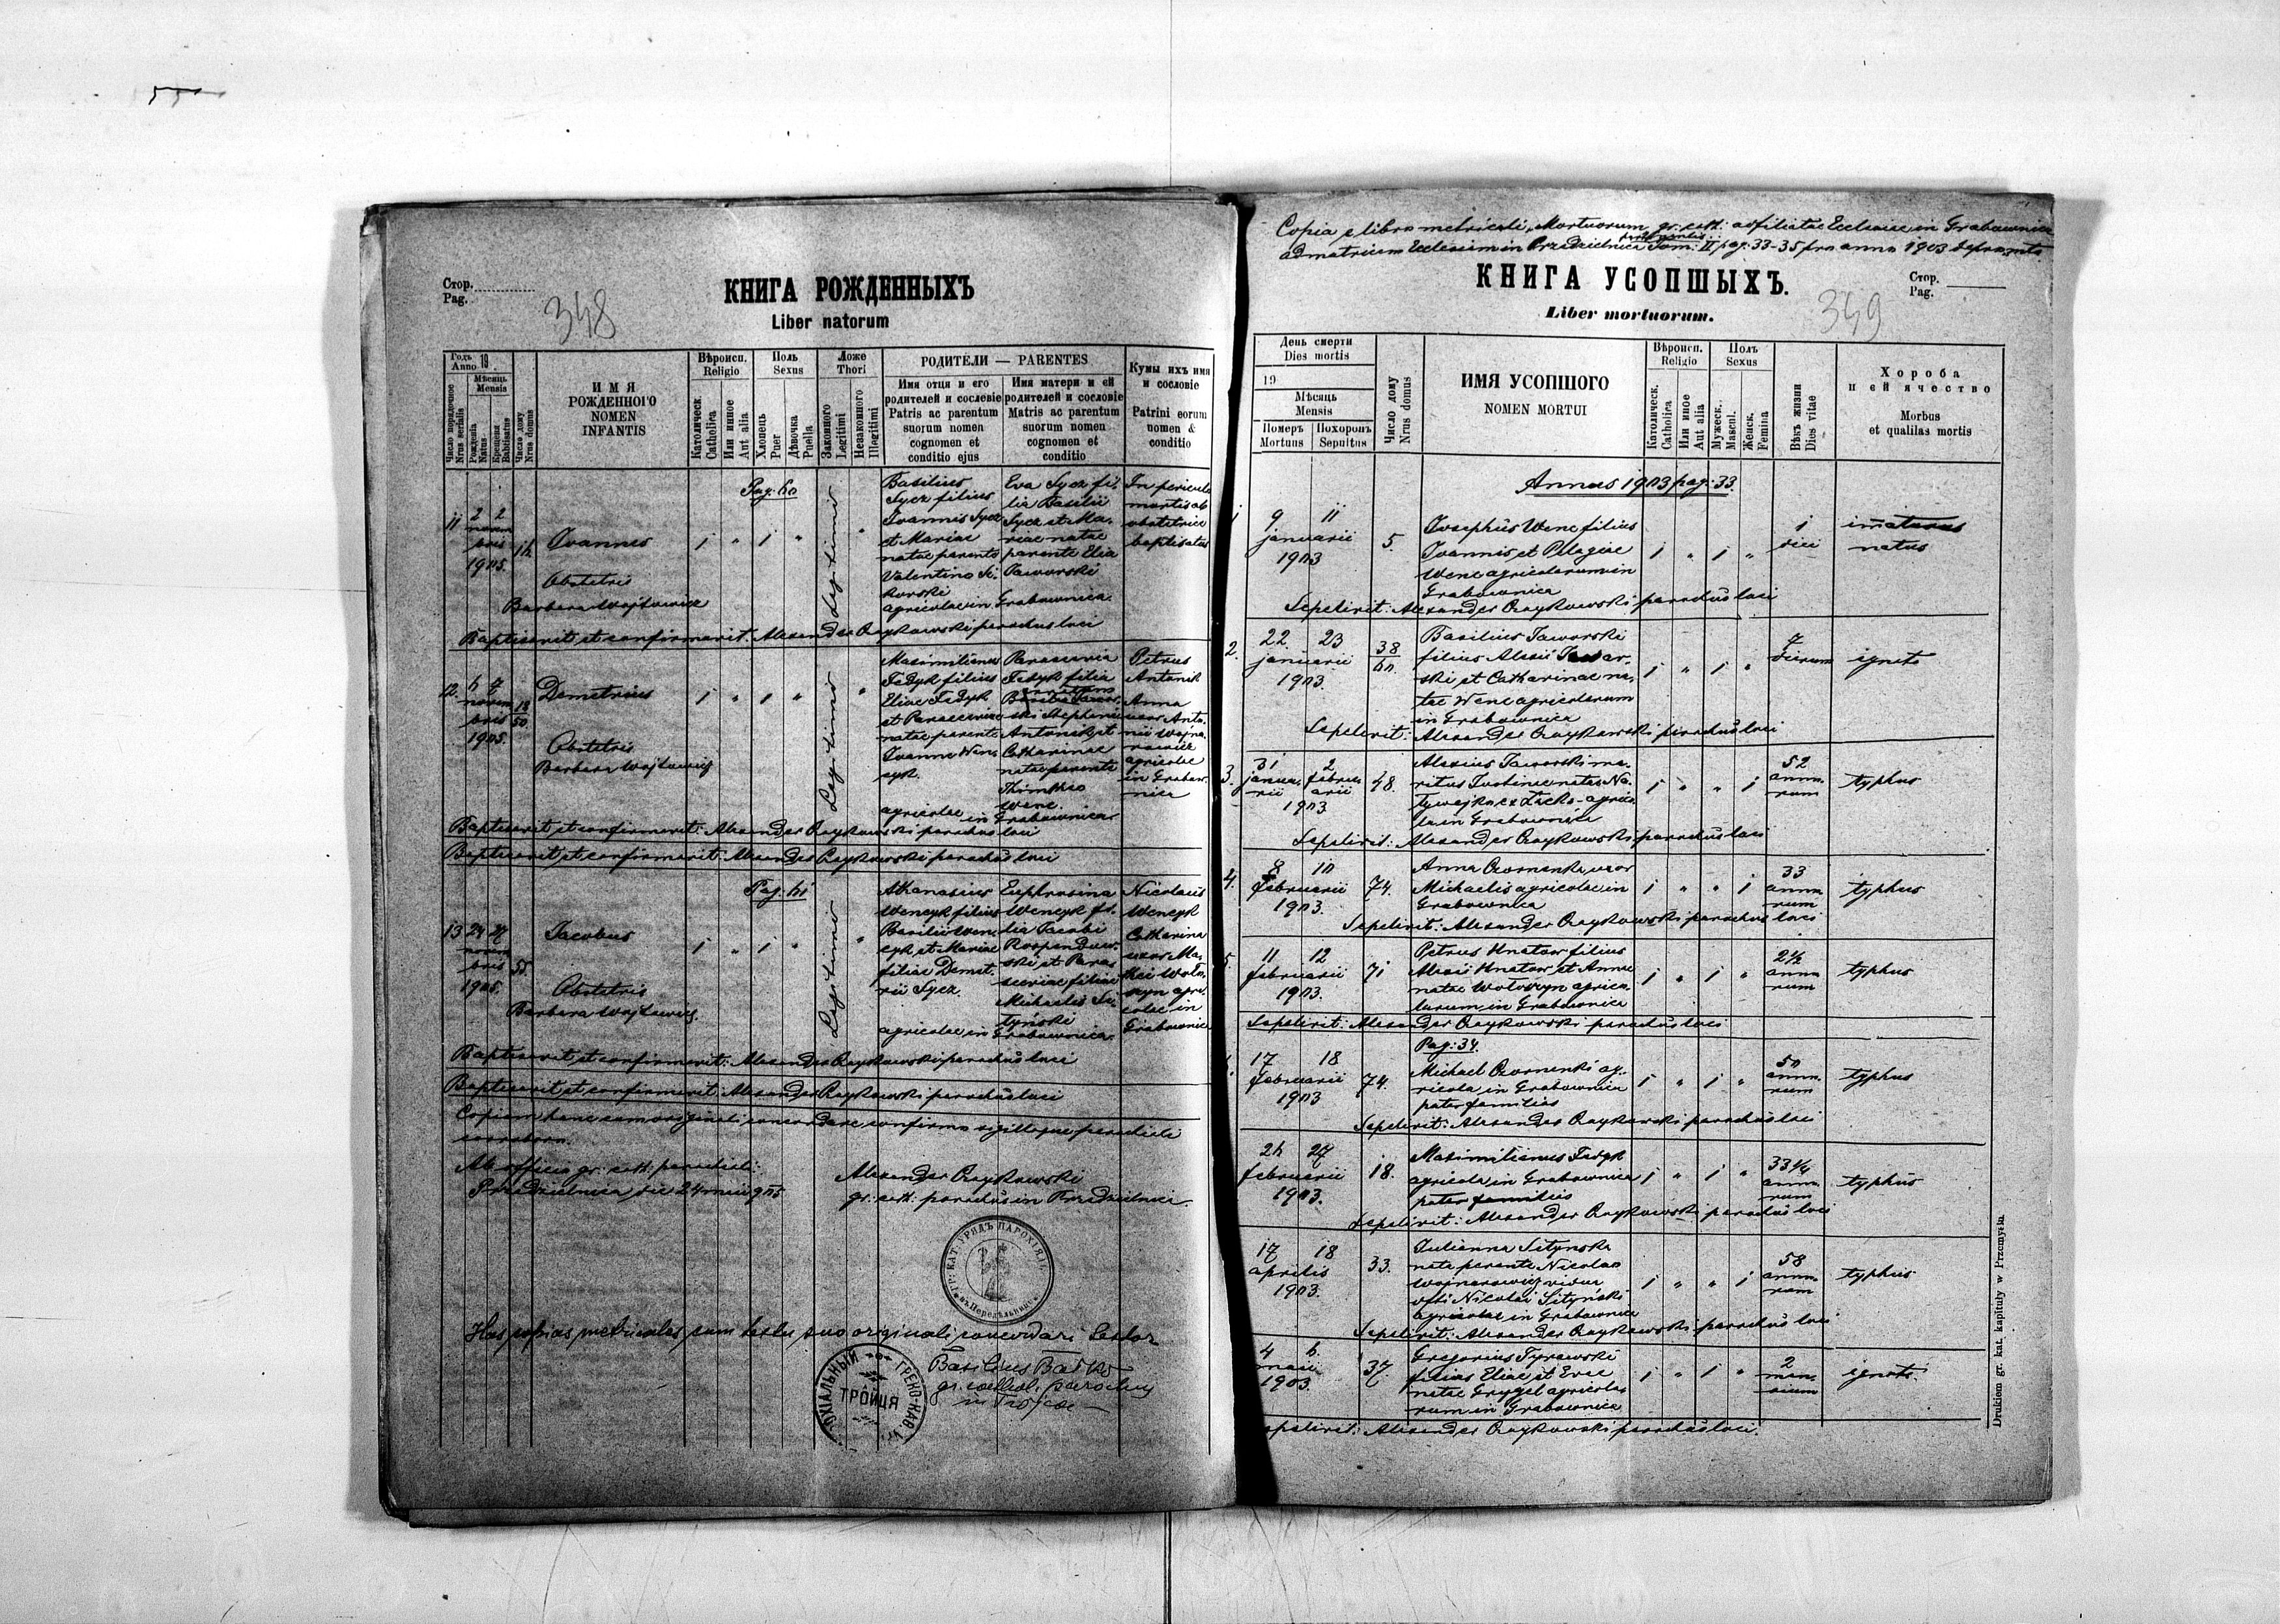 Стор.
Pag.
348
КНИГА РОЖДЕННЫХЪ
Liber natorum
Годъ
Anno 19
Мѣсяць
Mensis
Число порядочное
Nrus serialis
Рожденія
Natus
Крещенія
Babtisatus
Число дому
Nrus domus
ИМЯ
РОЖДЕННОГО
NOMEN
INFANTIS
Вѣроисп.
Religio
Католическ
Catholica
Или инное
Aut alia
Полъ
Sexus
Хлопець
Puer
Дѣвочка
Puella
Ложе
Thori
Законного
Legitimi
Незаконного
Illegitimi
РОДИТЕЛИ — PARENTES
Имя отця и его
родителей и сословіе
Patris ac parentum
suorum nomen
cognomen et
conditio ejus
Имя матери и ей
родителей и сословіе
Matris ac parentum
suorum nomen
cognomen et
conditio
Кумы ихъ имя
и сословіе
Patrini eorum
nomen &
conditio
Pag: 60
11
2 2
novem
bris
1905.
Ioannes
1 „ 1 „
Legitimi
Obstetrix
Barbara Wojtowicz
Basilius
Sycz filius
Ioannis Sycz
et Mariae
natae parente
Valentino Si-
korski
agricolae in Grabownica
Eva Sycz fi-
lia Basilii
Sycz et Ma-
riae natae
parente Elia
Jaworski
In periculo
mortis ab
obstetrice
baptisatus
Baptisavit et confirmavit: Alexander Czajkowski parochus loci
12.
6 7
novem
bris
1905.
18
50
Demetrius
1 „ 1 „
Legitimi
Obstetrix
Barbara Wojtowicz
Maximilianus
Fedyk filius
Eliae Fedyk
et Parasceviae
natae parente
Ioanne Wen-
cyk.
agricolae in Grabownica
Parascevia
Fedyk filia
Stephani
Antonik et
Catharinae
natae parente
Thimotheo
Wenc.
Petrus
Antonik
Anna
uxor Anto-
nii Wojna-
rowicz
agricolae
in Grabow-
nica
Baptisavit et confirmavit: Alexander Czajkowski parochus loci
Baptisavit et confirmavit: Alexander Czajkowski parochus loci
Pag: 61
13
24 27
novem
bris
1905.
55.
Iacobus
1 „ 1 „
Legitimi
Obstetrix
Barbara Wojtowicz.
Athanasius
Wencyk filius
Basilii Wen-
cyk et Mariae
filiae Demet-
rii Sycz.
agricolae in Grabownica.
Euphrosina
Wencyk fi-
lia Jacobi
et Paras-
ceviae filiae
Michaelis Si-
tyński
Nicolaus
Wencyk
Catharina
uxor Ma-
thei Woło-
szyn agri-
colae in
Grabownica
Baptisavit et confirmavit: Alexander Czajkowski parochus loci
Baptisavit et confirmavit: Alexander Czajkowski parochus loci
Copiam hanc cum originali concordare confirmo sigilloque parochiali
corroboro.
Ab officio gr: cath: parochiali:
Przedzielnica die 24 maii 905
Alexander Czajkowski
gr: cath: parochus in Przedzielnica.
Has copias metricales cum textu suo originali concordari testor
gr. cathol. parochus
in Trójca
ГРЕКО-КАТ.
ТРОЙЦЯ
Copia e libro metricali Mortuorum gr: cath: adfiliatae Ecclesiae in Grabownica
ad matricem Ecclesiam in Przedzielnica Tom: II pag: 33-35 pro anno 1903 deprompta
КНИГА УСОПШЫХЪ.
Liber mortuorum.
Стор.
Pag.
349
День смерти
Dies mortis
19
Мѣсяць
Mensis
Померъ
Mortuus
Похоронъ
Sepultus
Число дому
Nrus domus
ИМЯ УСОПШОГО
NOMEN MORTUI
Вѣроисп.
Religio
Католическ.
Catholica
Или иное
Aut alia
Полъ
Sexus
Мужеск.
Mascul.
Женск.
Femina
Вѣкъ жизни
Dies vitae
Хороба
и ей ячество
Morbus
et qualilas mortis
Annus 1903 pag: 33.
1
9 11
januarii
1903
5.
Iosephus Wenc filius
Ioannis et Pelagiae
Wenc agricolarum in
Grabownica
1 „ 1 „
1
diei
imaturus
natus
Sepelivit: Alexander Czajkowski parochus loci
2.
22 23
januarii
1903.
38
60.
Basilius Jaworski
filius Alexii Jawor-
ski et Catharinae na-
tae Wenc agricolarum
in Grabownica
1 „ 1 „
7
dierum
ignota
Sepelivit: Alexander Czajkowski parochus loci
3.
31 2
janua- februa-
rii arii
1903
48.
Alexius Jaworski ma-
ritus Iustinae natae
agrico-
la in Grabownica
1 „ „ 1
52
anno-
rum
typhus
Sepelivit: Alexander Czajkowski parochus loci
4.
8 10
februarii
1903.
74.
Anna Czornenka uxor
Michaelis agricolae in
Grabownica
1 „ „ 1
33
anno-
rum
typhus
Sepelivit: Alexander Czajkowski parochus loci
5.
11 12
februarii
1903.
71
Petrus Hnatow filius
Alexii Hnatow et Annae
natae Wołoszyn agrico-
larum in Grabownica
1 „ 1 „
2½
anno-
rum
typhus
Sepelivit: Alexander Czajkowski parochus loci
Pag: 34.
17 18
februarii
1903
74.
Michael Czornenki ag-
ricola in Grabownica
pater familias
1 „ 1 „
50
anno-
rum
typhus
Sepelivit: Alexander Czajkowski parochus loci
26 27
februarii
1903.
18.
Maximilianus Fedyk
agricola in Grabownica
pater familias
1 „ 1 „
33¼
anno-
rum
typhus
Sepelivit: Alexander Czajkowski parochus loci
17 18
aprilis
1903.
33.
Iulianna Sityńska
nata parente Nicolao
Wojnarowicz vidua
Nicolai Sityński
agricolae in Grabownica
1 „ „ 1
58
anno-
rum
typhus
Sepelivit: Alexander Czajkowski parochus loci
4 6.
maii
1903.
37.
Gregorius Tyrawski
filius Eliae et Evae
natae Grygel agricola-
rum in Grabownica
1 „ 1 „
2
men-
sium
ignota.
Sepelivit: Alexander Czajkowski parochus loci.
Drukiem gr. kat. kapituły w Przemyślu.